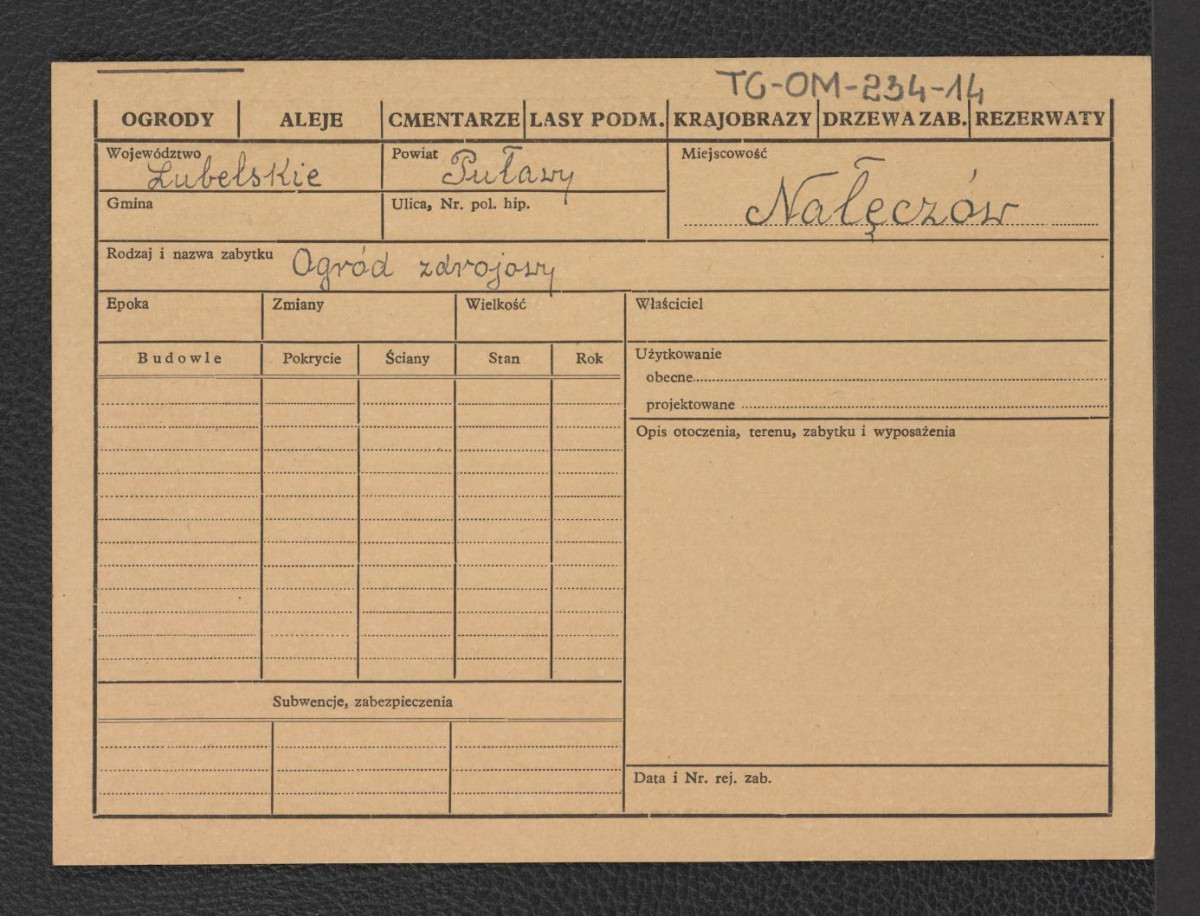 TG-OM-234-14
OGRODY ALEJE CMENTARZE LASY PODM. KRAJOBRAZY DRZEWA ZAB. REZERWATY
Województwo Lubelskie
Powiat Puławy
Miejscowość
Nałęczów
Gmina
Ulica, Nr. pol. hip.
Rodzaj i nazwa zabytku Ogród zdrojowy
Epoka Zmiany Wielkość
Właściciel
Budowle Pokrycie Ściany Stan Rok
Użytkowanie
obecne
projektowane
Opis otoczenia, terenu, zabytku i wyposażenia
Subwencje, zabezpieczenia
Data i Nr. rej. zab.